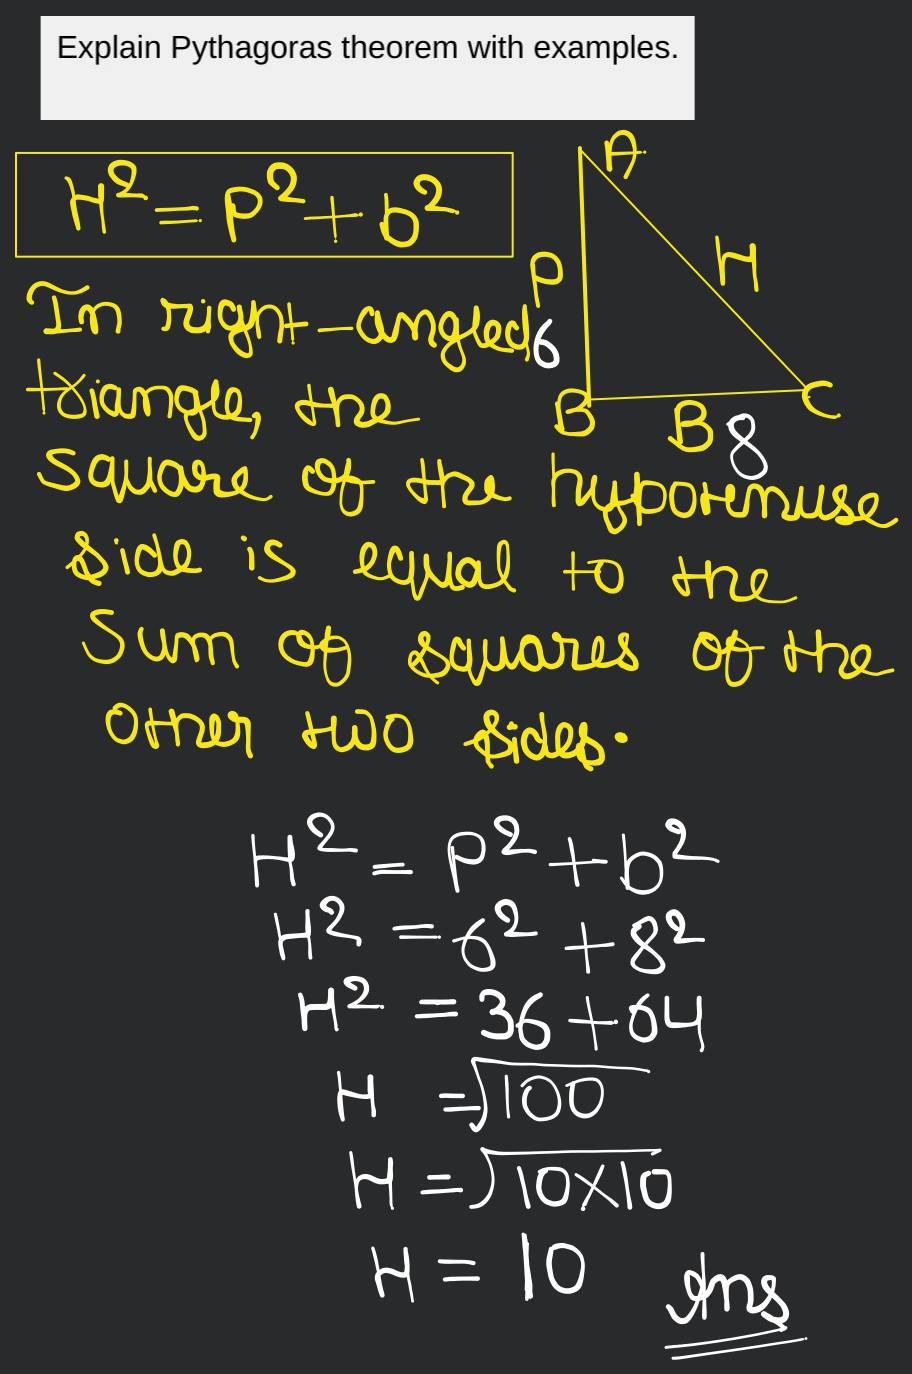 Explain Pythagoras theorem with examples.
H² = P² + b²
A
P
H
6
B
B 8
C
In right-angled
triangle, the
Square of the hypotenuse
side is equal to the
Sum of squares of the
other two sides.
H² = P² + b²
H² = 6² + 8²
H² = 36 + 64
H = √100
H = √10×10
H = 10
Ans